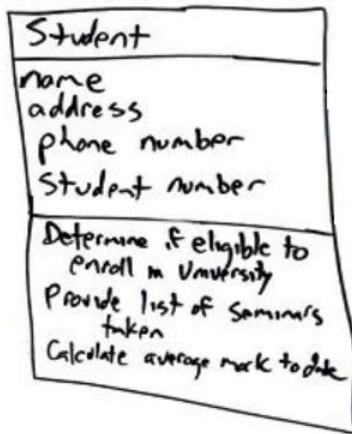 Student
name
address
phone number
Student number
Determine if eligible to
enroll in University
Provide list of seminars
taken
Calculate average mark to date